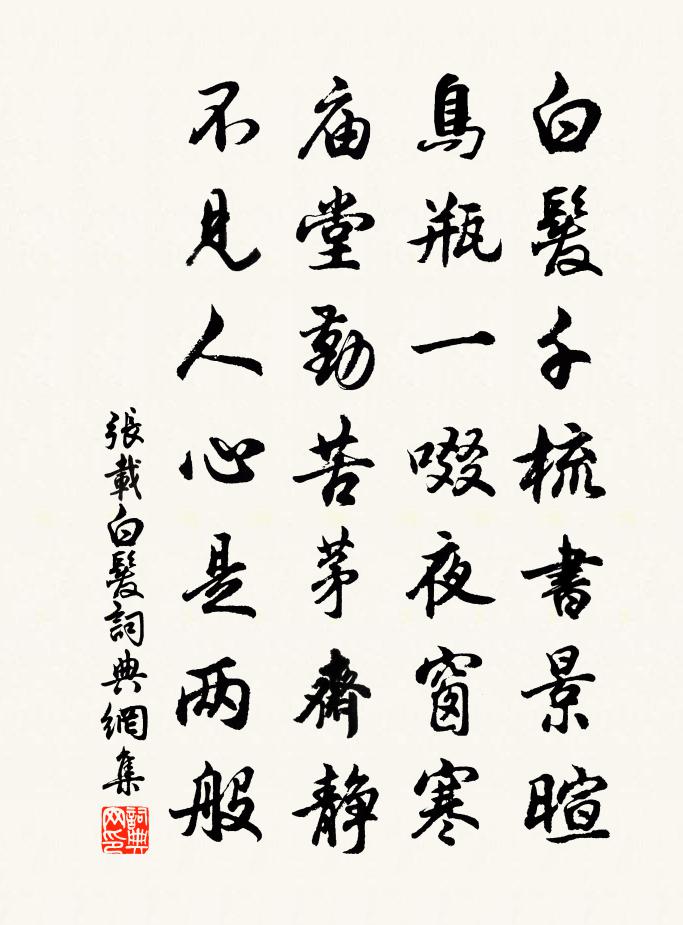 白髮千梳書景暄
鳥瓶一啜夜窗寒
庙堂勤苦茅齋静
不見人心是两般
張載白髮詞典網集
詞典网印